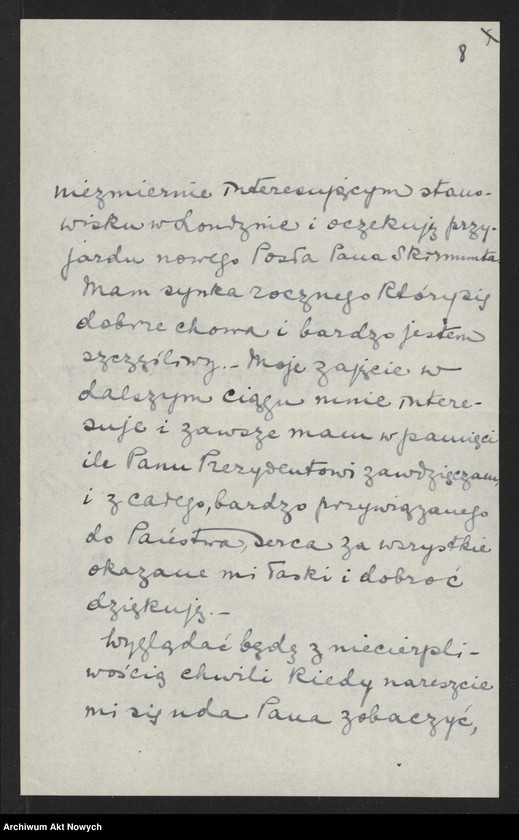 8 x
niezmiernie interesującym stano-
wisku w Londynie i oczekuję przy-
jazdu nowego Posła Pana Skirmunta
Mam synka rocznego który się
dobrze chowa i bardzo jestem
szczęśliwy. – Moje zajęcie w
dalszym ciągu mnie intere-
suje i zawsze mam w pamięci
ile Panu Prezydentowi zawdzięczam,
i z całego, bardzo przywiązanego
do Państwa, serca za wszystkie
okazane mi łaski i dobroć
dziękuję. –
Wyglądać będę z niecierpli-
wością chwili kiedy nareszcie
mi się uda Pana zobaczyć,
Archiwum Akt Nowych